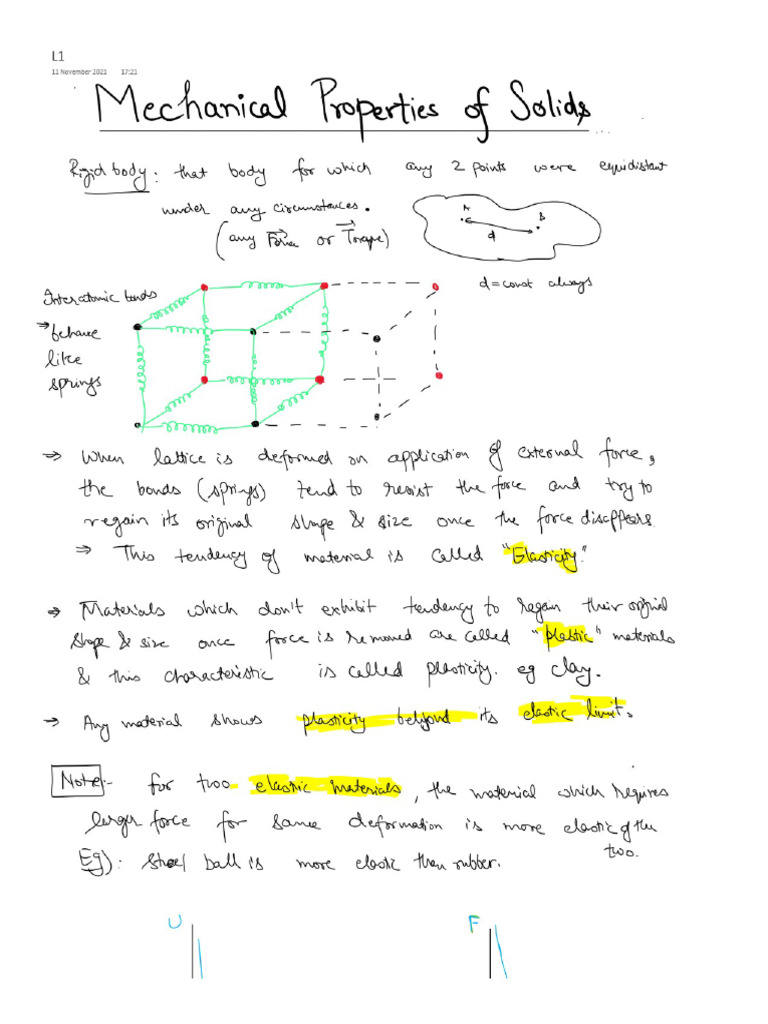 L1
11 November 2021 17:21
Mechanical Properties of Solids
Rigid body: that body for which any 2 points were equidistant
under any circumstances.
(any Force or Torque)
A
B
d
d = const always
Interatomic bonds
→ behave
like
springs
⇒ When lattice is deformed on application of external force,
the bonds (springs) tend to resist the force and try to
regain its original shape & size once the force disappears.
⇒ This tendency of material is called "Elasticity."
→ Materials which don't exhibit tendency to regain their original
shape & size once force is removed are called "plastic" materials
& this characteristic is called plasticity. eg clay.
→ Any material shows plasticity behyond its elastic limit.
Note:- for two elastic materials, the material which requires
larger force for same deformation is more elastic of the
two.
Eg): Steel ball is more elastic than rubber.
U
F